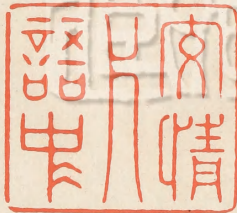 文情
語中